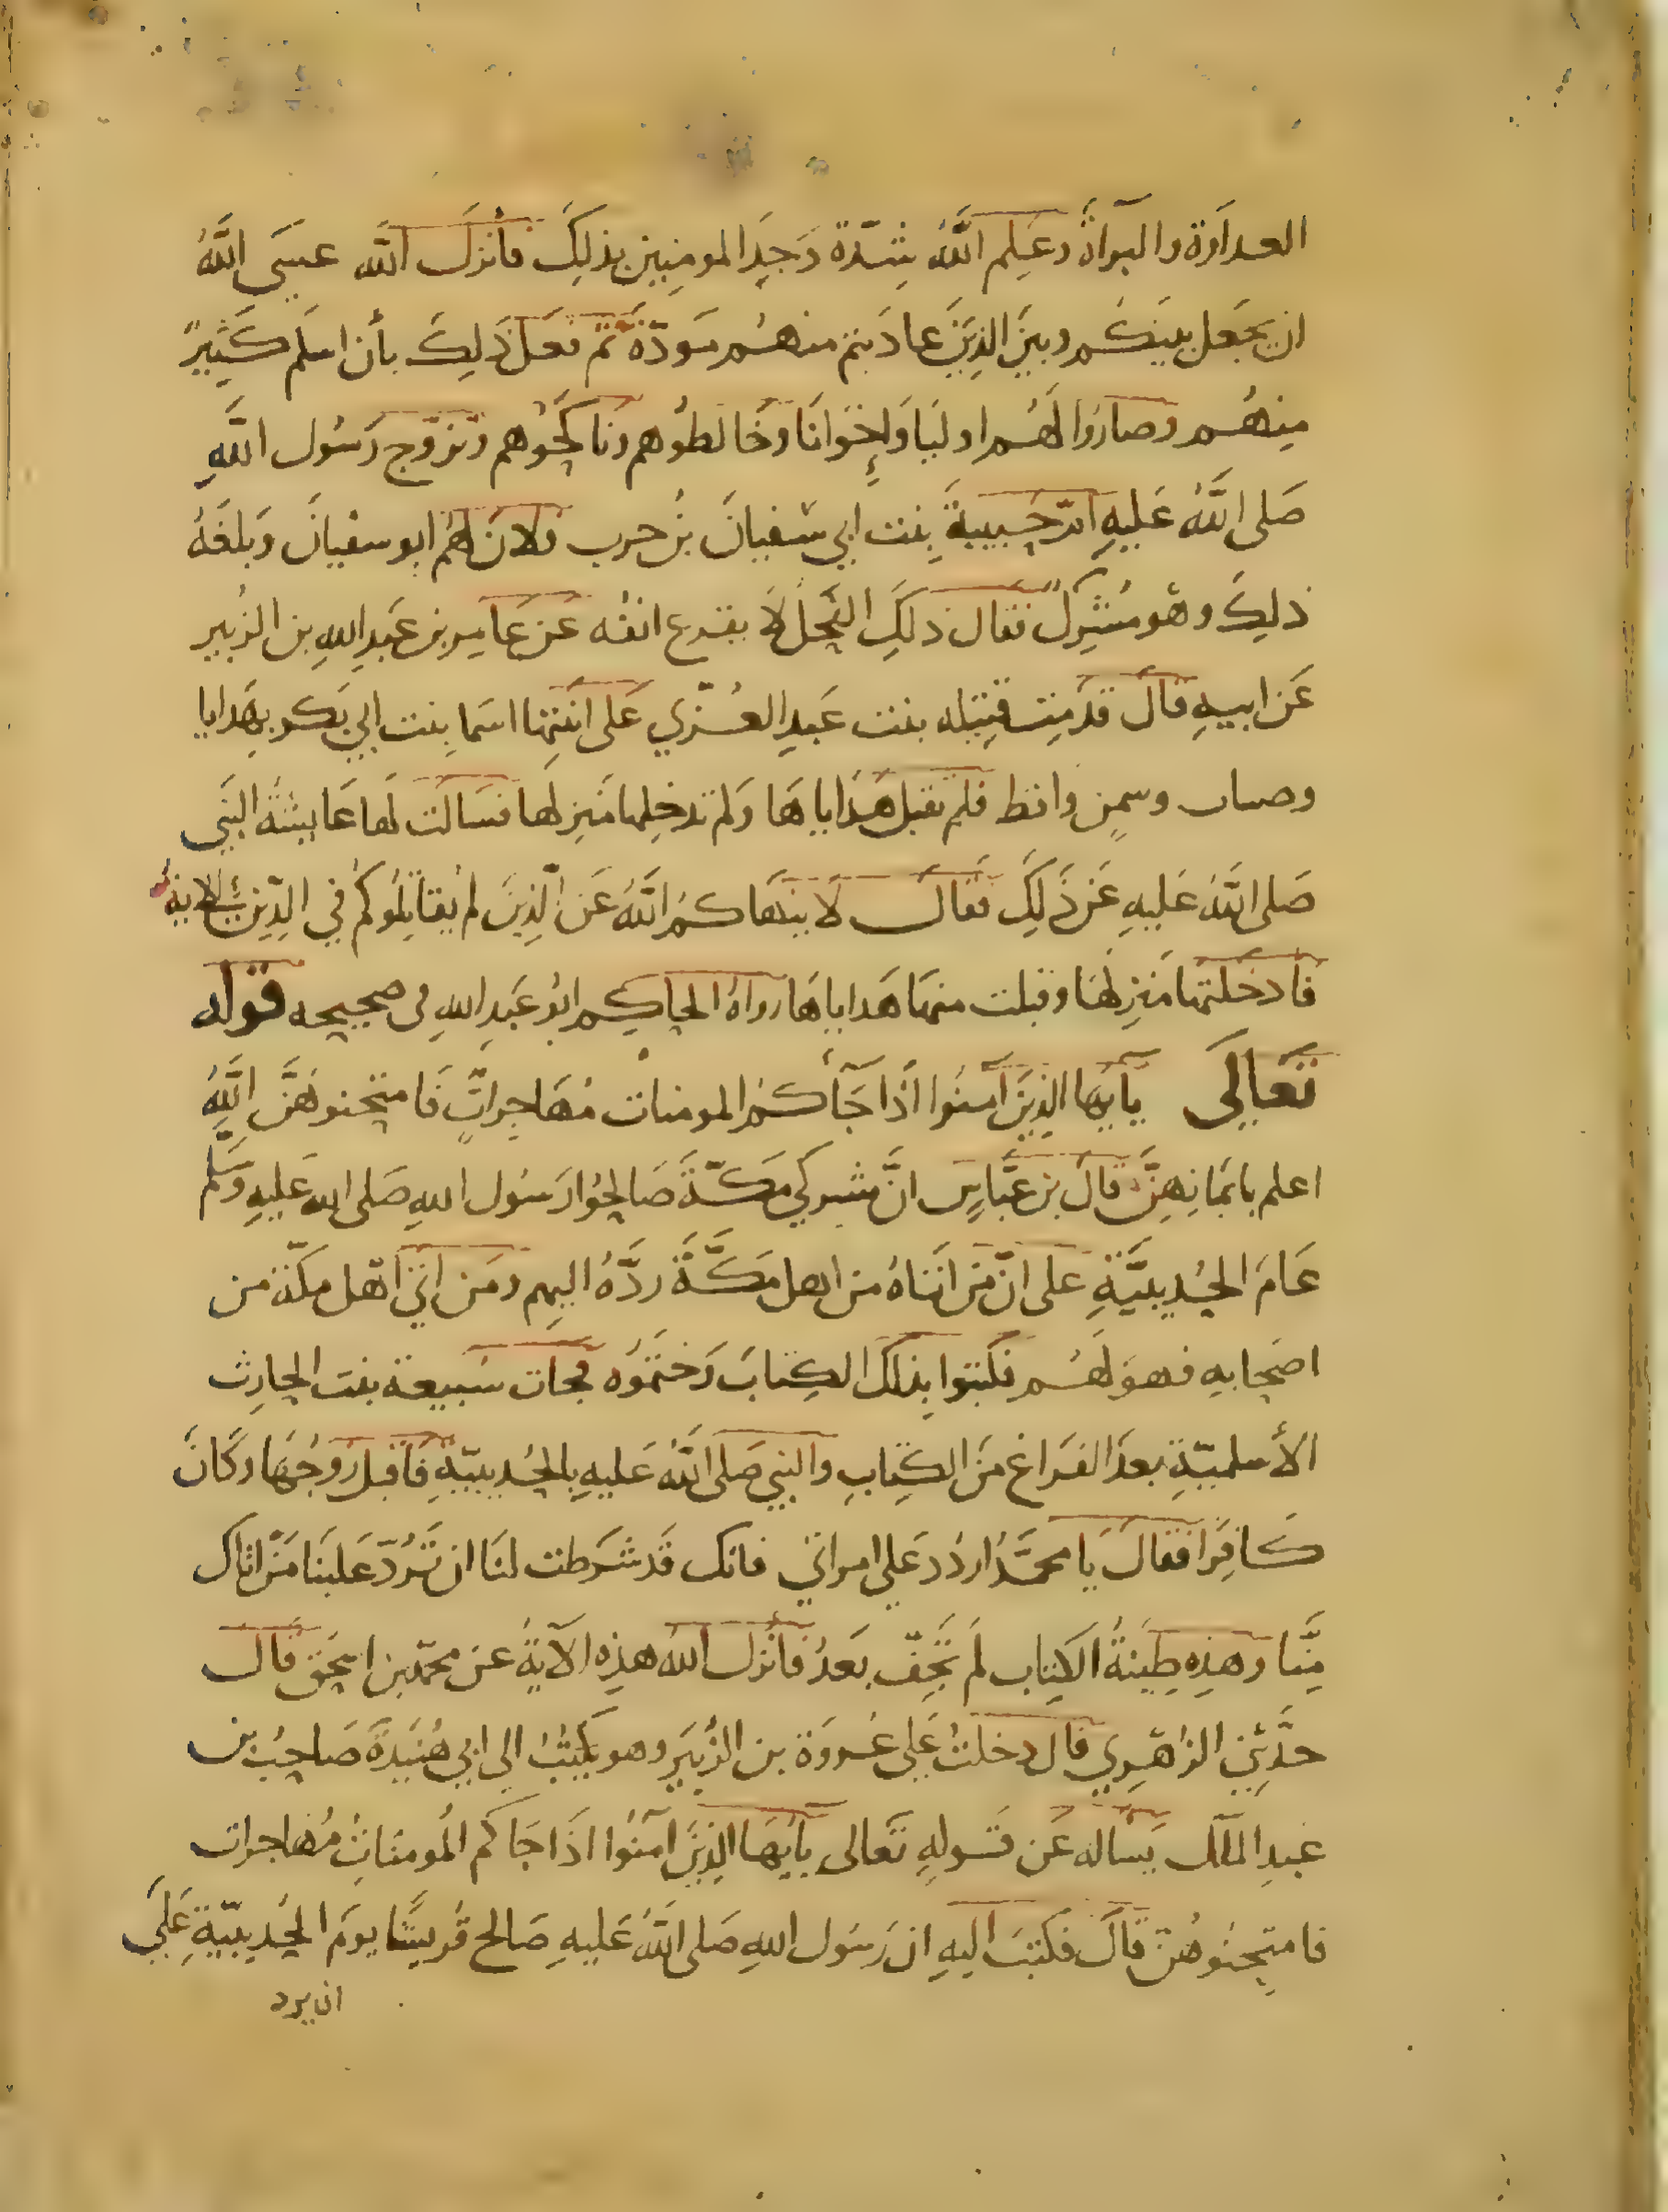 العداوة والبراة وعلم الله شدة وجد المومنين بذلك فأنزل الله عسى الله
ان يجعل بينكم وبين الذين عاديتم منهم مودة ثم فعل ذلك بأن اسلم كثير
منهم وصاروا لهم اوليا وإخوانا وخالطوهم وناكحوهم وتزوج رسول الله
صلى الله عليه ام حبيبة بنت ابي سفيان بن حرب فلان لهم ابو سفيان وبلغه
ذلك وهو مشرك فقال ذلك الفحل لا يقرع انفه عن عامر بن عبد الله بن الزبير
عن ابيه قال قدمت قتيله بنت عبد العزي على ابنتها اسما بنت ابي بكر بهدايا
وسمن واقط فلم تقبل هداياها ولم تدخلها منزلها فسالت لها عايشة النبي
صلى الله عليه عن ذلك فقال لا ينهاكم الله عن الذين لم يقاتلوكم في الدين الاية
فادخلتها منزلها وقبلت منها هداياها رواه الحاكم ابو عبد الله في صحيحه قوله
تعالى يأيها الذين آمنوا اذا جآأكم المومنات مهاجرات فامتحنوهن الله
اعلم بايمانهن قال بن عباس ان مشركي مكة صالحوا رسول الله صلى الله عليه وسلم
عام الحديبية على ان من اتاه من اهل مكة رده اليهم ومن اتي اهل مكة من
اصحابه فهو لهم فكتبوا بذلك الكتاب وختموه فجات سبيعة بنت الحارث
الأسلمية بعد الفراغ من الكتاب والنبي صلى الله عليه بالحديبية فاقبل زوجها وكان
كافرا فقال يا محمد اردد علي امراتي فانك قد شرطت لنا ان ترد علينا من اتاك
منا وهذه طينة الكتاب لم تجف بعد فأنزل الله هذه الآية عن محمد بن اسحق قال
حدثني الزهري قال دخلت على عروة بن الزبير وهو يكتب الى ابي هنيدة صاحب بن
عبد الملك يسأله عن قوله تعالى يأيها الذين آمنوا اذا جاكم المومنات مهاجرات
فامتحنوهن قال فكتب اليه ان رسول الله صلى الله عليه صالح قريشا يوم الحديبية على
ان يرد